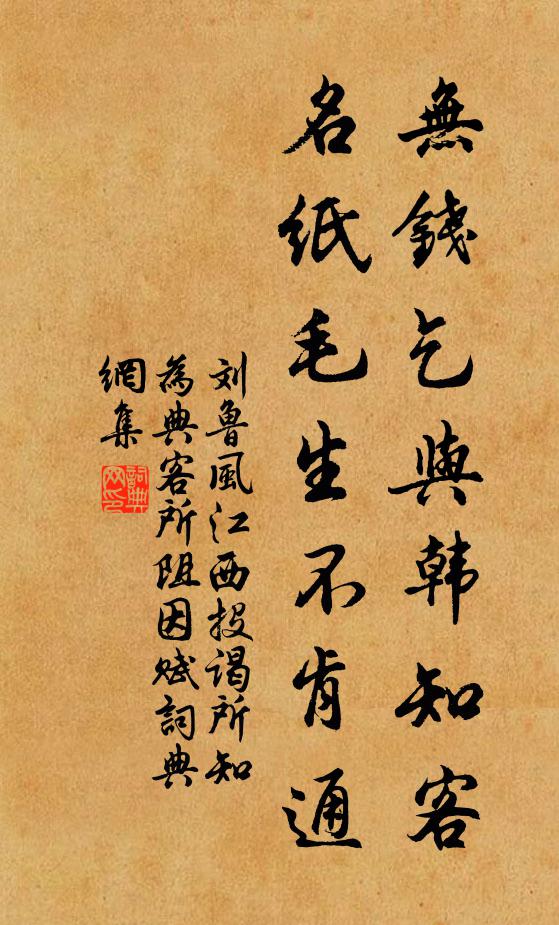 無錢乞與韩知客
名纸毛生不肯通
刘魯風江西投謁所知
為典客所阻因赋詞典
網集
詞典網印